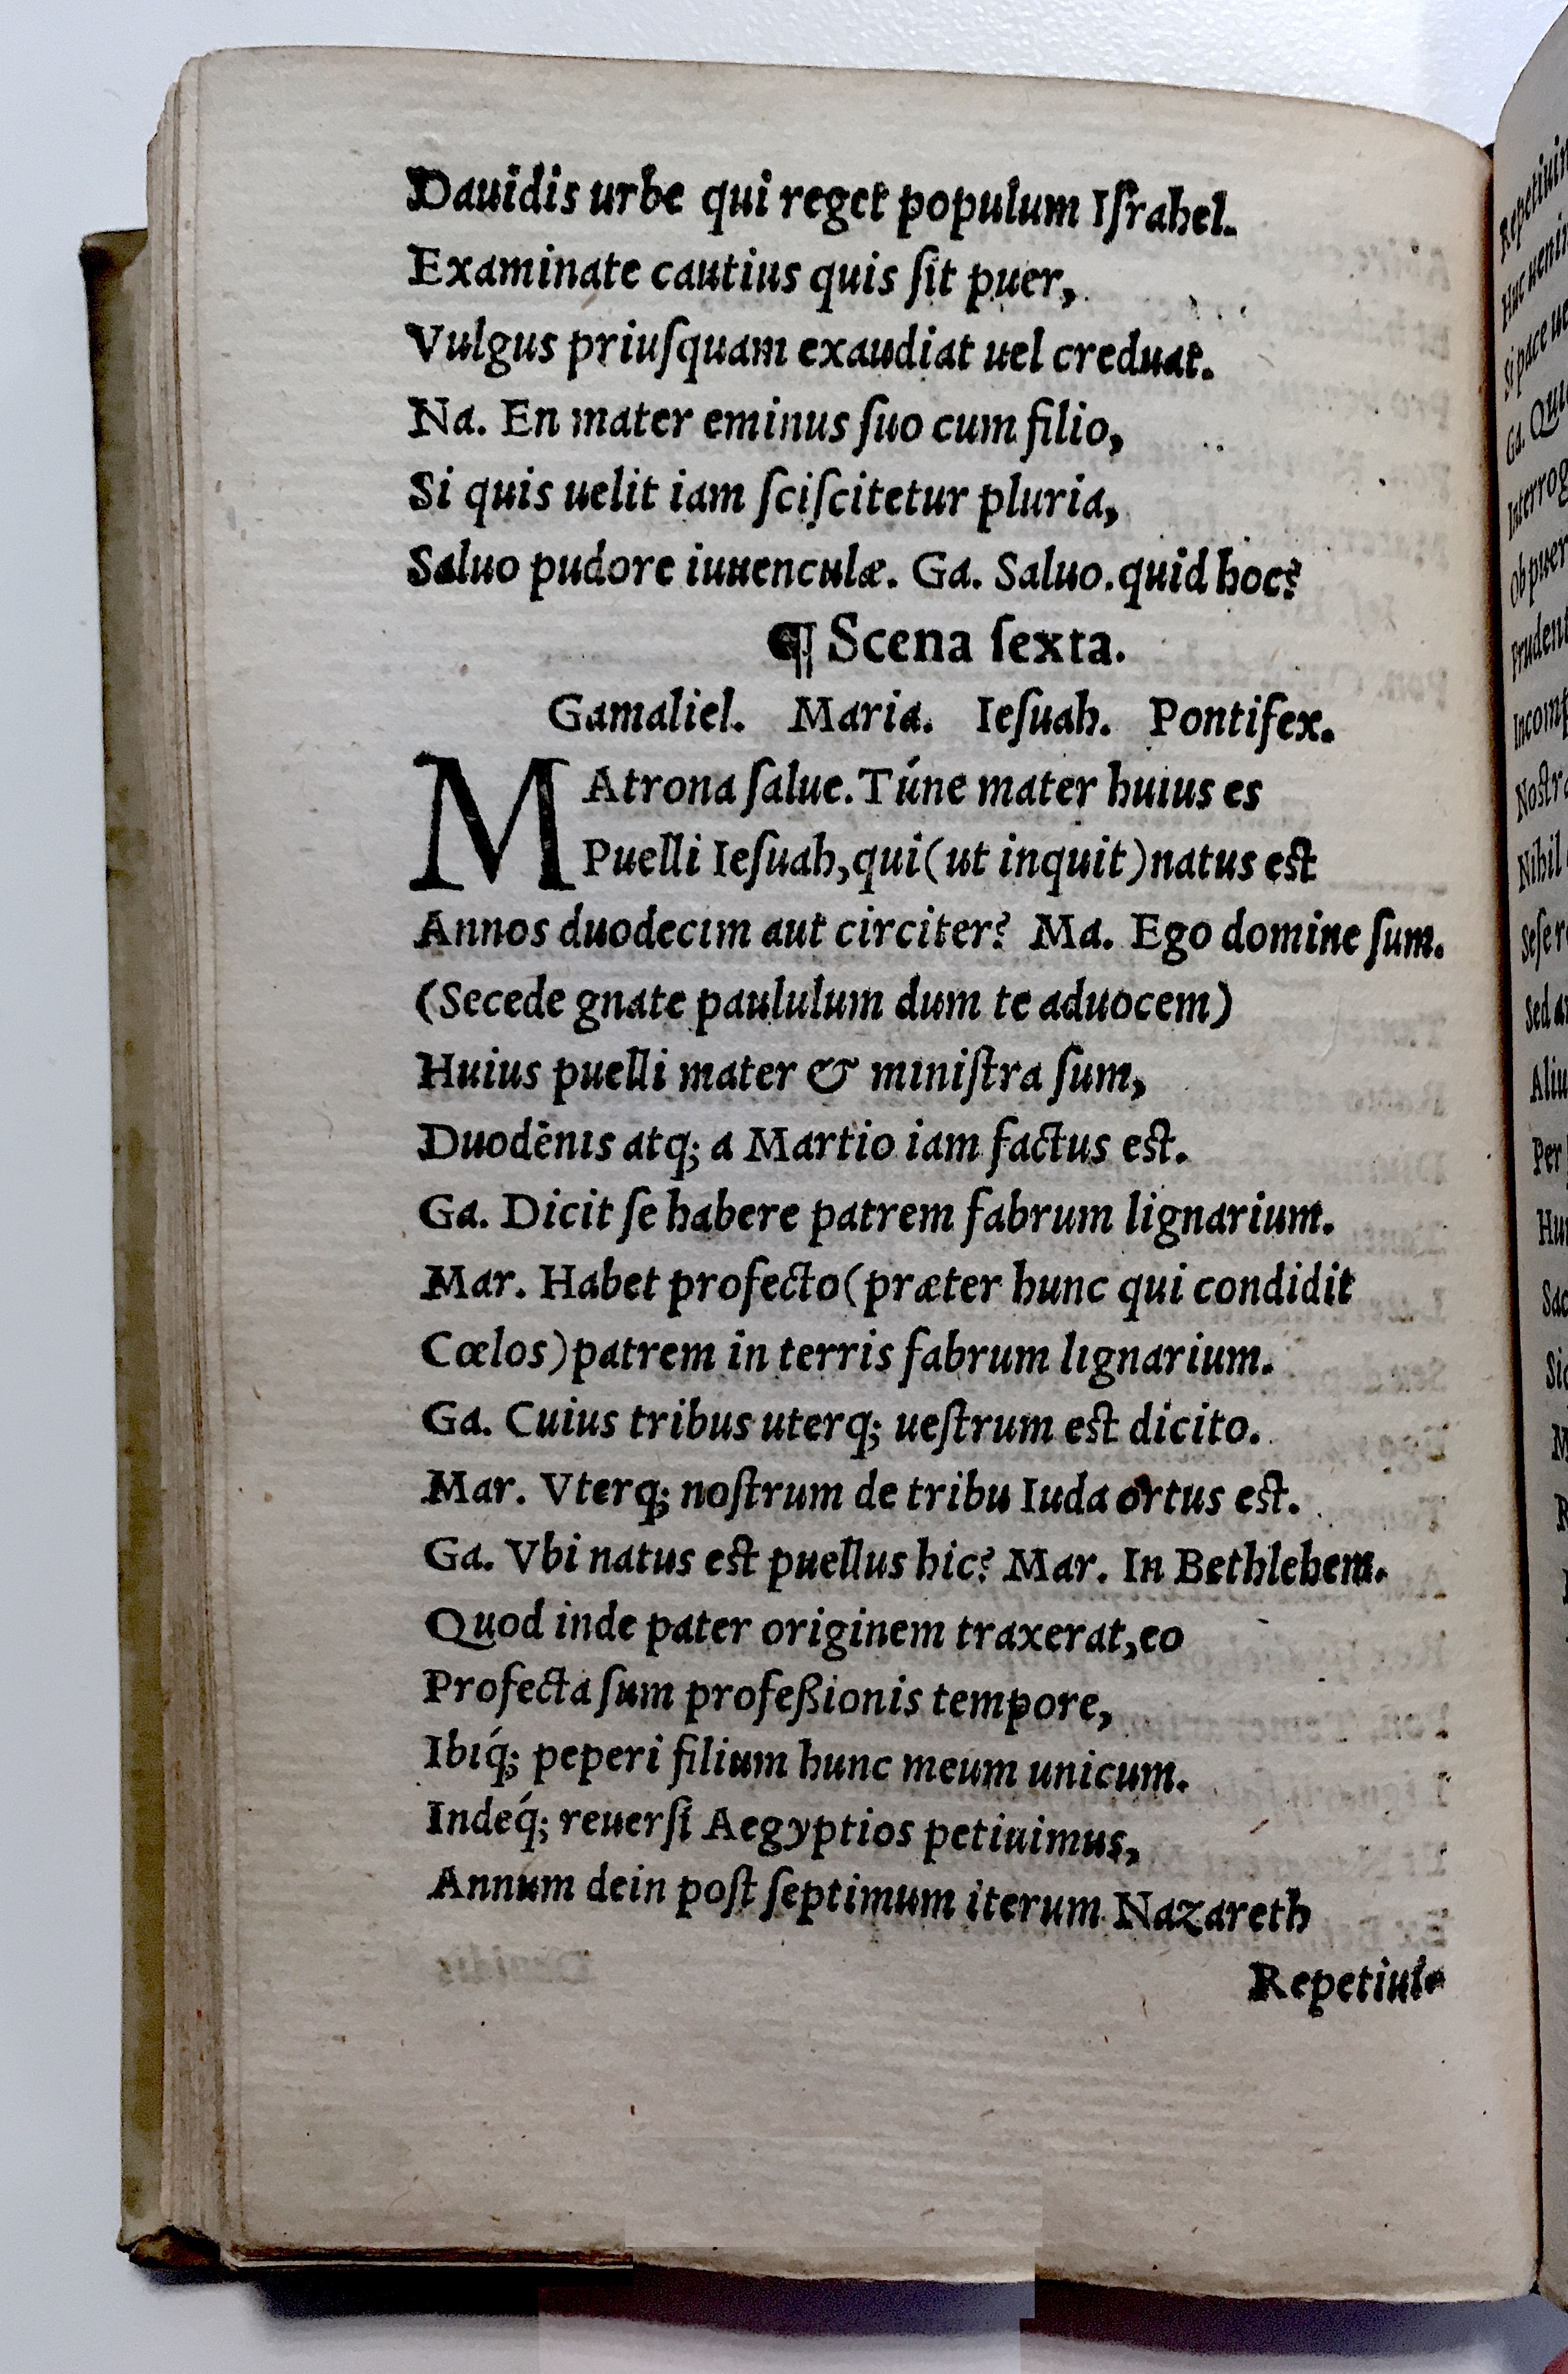 Dauidis urbe qui reget populum Iſrahel.
Examinate cautius quis ſit puer,
Vulgus priuſquam exaudiat uel creduat.
Na. En mater eminus ſuo cum filio,
Si quis uelit iam ſciſcitetur pluria,
Saluo pudore iuuenculæ. Ga. Saluo. quid hoc?
¶ Scena ſexta.
Gamaliel. Maria. Ieſuah. Pontifex.
MAtrona ſalue. Túne mater huius es
Puelli Ieſuah, qui (ut inquit) natus est
Annos duodecim aut circiter? Ma. Ego domine ſum.
(Secede gnate paululum dum te aduocem)
Huius puelli mater & miniſtra ſum,
Duodēnis atq; a Martio iam factus est.
Ga. Dicit ſe habere patrem fabrum lignarium.
Mar. Habet profecto (præter hunc qui condidit
Cœlos) patrem in terris fabrum lignarium.
Ga. Cuius tribus uterq; ueſtrum est dicito.
Mar. Vterq; noſtrum de tribu Iuda ortus est.
Ga. Vbi natus est puellus hic? Mar. In Bethlehem.
Quod inde pater originem traxerat, eo
Profecta ſum profeßionis tempore,
Ibiq́; peperi filium hunc meum unicum.
Indeq́; reuerſi Aegyptios petiuimus,
Annum dein poſt ſeptimum iterum Nazareth
Repetiui-